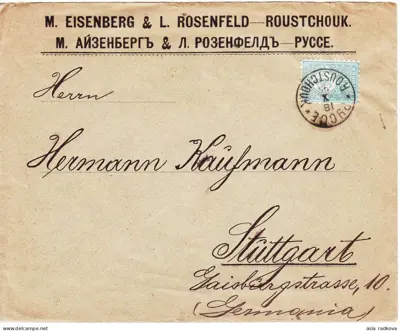 M. EISENBERG & L. ROSENFELD—ROUSTCHOUK.
М. АЙЗЕНБЕРГЪ & Л. РОЗЕНФЕЛДЪ—РУССЕ.
ROUSTCHOUK
РУССЕ
18
X
Herrn
Hermann Kaufmann
Stuttgart
Gaisburgstrasse, 10.
(Germania)
asia radkova